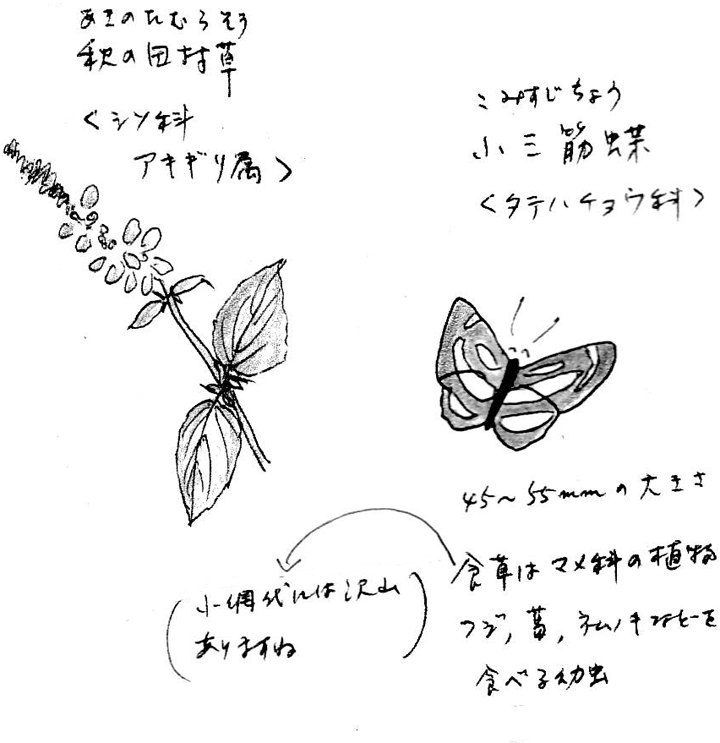 あきのたむらそう
秋の田村草
<シソ科
アキギリ属>
こみすじちょう
小三筋蝶
<タテハチョウ科>
45~55mmの大きさ
食草はマメ科の植物
フジ,葛,ネムノキなどを
食べる幼虫
(小網代には沢山
ありますね)